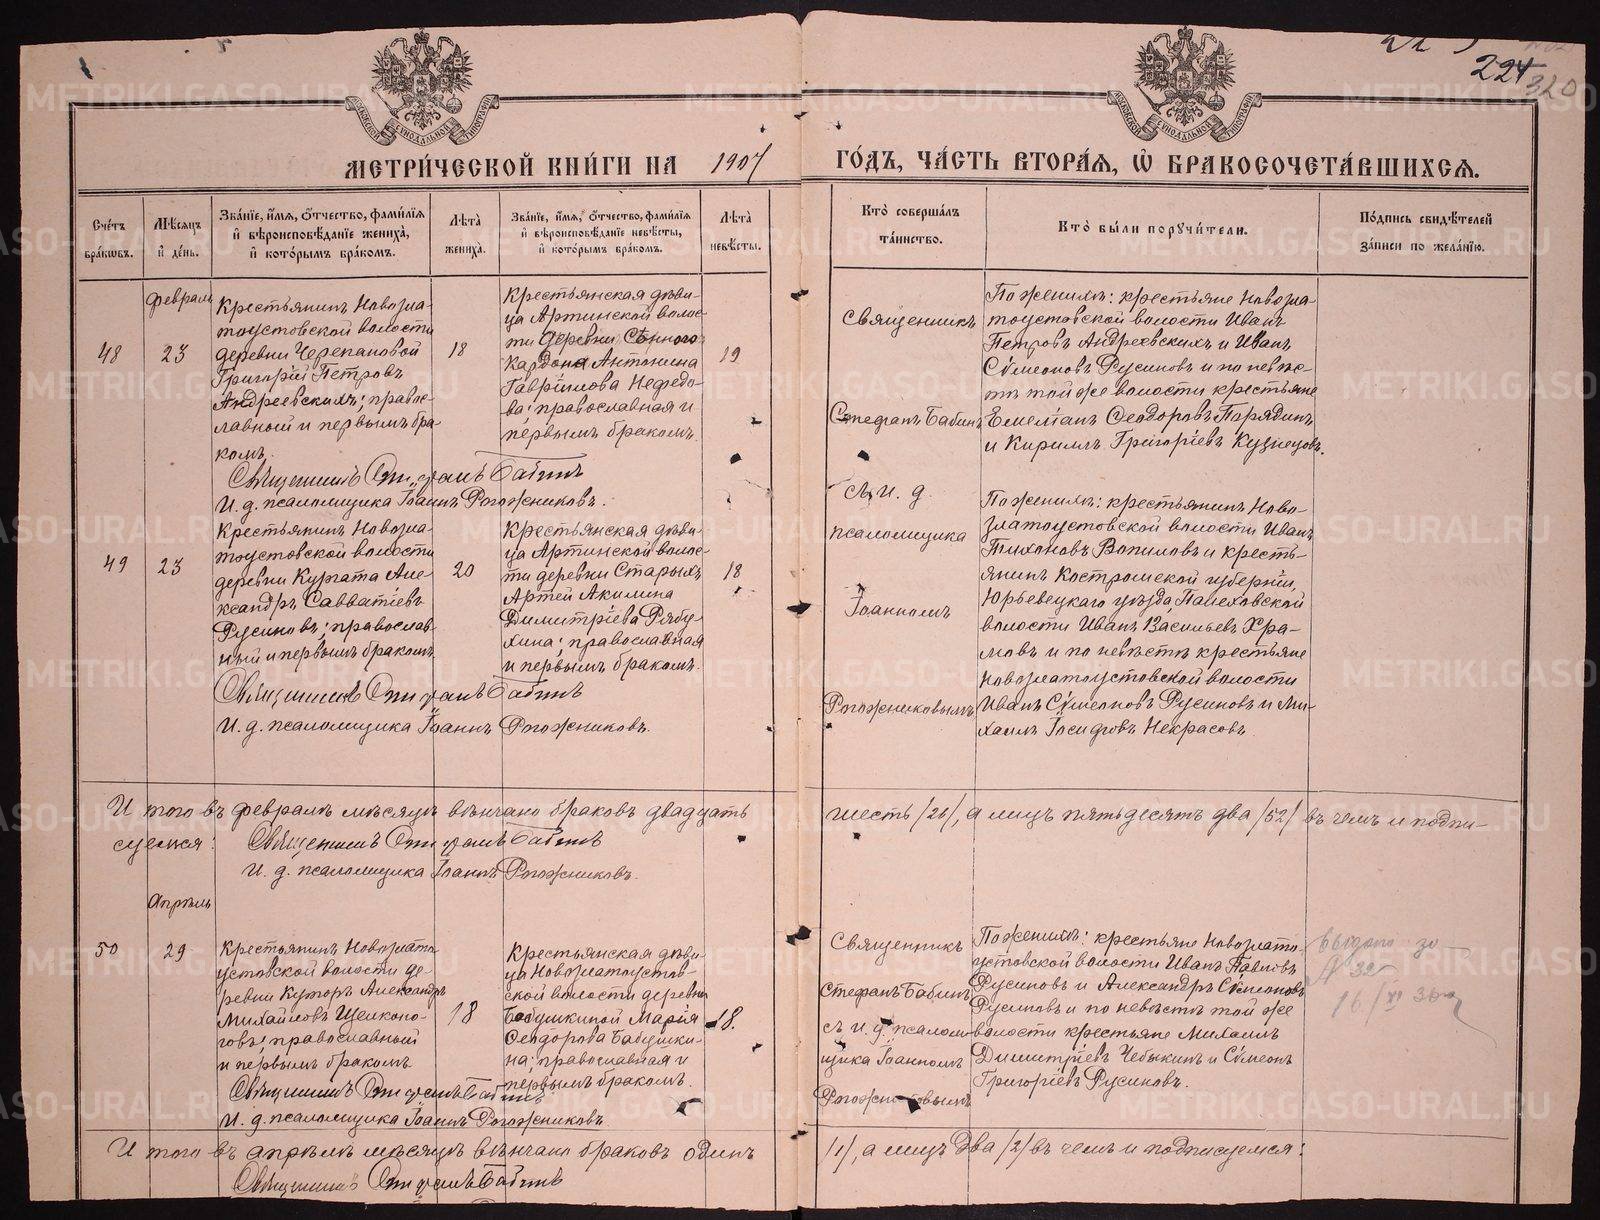 224
320
МЕТРИ́ЧЕСКОЙ КНИ́ГИ НА 1907
ГО́ДЪ, ЧА́СТЬ ВТОРА́Я, Ѡ БРАКОСОЧЕТА́ВШИХСЯ.
Сче́тъ бра́кωвъ.
Мѣ́сяцъ и҆ де́нь.
Зва́нїе, и҆́мя, о҆́тчество, фами́лїя и҆ вѣроисповѣ́данїе жениха̀, и҆ кото́рымъ бра́комъ.
Лѣта̀ жениха̀.
Зва́нїе, и҆́мя, о҆́тчество, фами́лїя и҆ вѣроисповѣ́данїе невѣ́сты, и҆ кото́рымъ бра́комъ.
Лѣта̀ невѣ́сты.
Кто̀ соверша́лъ та́инство.
Кто̀ бы́ли порꙋчи́тели.
По́дпись свидѣ́телей за́писи по жела́нїю.
48
февраль
23
Крестьянинъ Новозла-
тоустовской волости
деревни Черепановой
Григорій Петровъ
Андреевскихъ; правос-
лавный и первымъ бра-
комъ.
18
Крестьянская дѣви-
ца Артинской волос-
ти деревни Сѣнного
Кардона Антонина
Гавріилова Нефедо-
ва; православная и
первымъ бракомъ.
19
Священникъ
Стефанъ Бабинъ
съ и. д.
псаломщика
Іоанномъ
Рогожниковымъ
По женихѣ: крестьяне Новозла-
тоустовской волости Иванъ
Петровъ Андреевскихъ и Иванъ
Сѵмеоновъ Русиновъ и по невѣс-
тѣ той же волости крестьяне
Емеліанъ Ѳеодоровъ Порядинъ
и Кириллъ Григоріевъ Кузнецовъ.
Священникъ Стефанъ Бабинъ
И. д. псаломщика Іоаннъ Рогожниковъ.
49
23
Крестьянинъ Новозла-
тоустовской волости
деревни Кургата Але-
ксандръ Савватіевъ
Русиновъ; православ-
ный и первымъ бракомъ
20
Крестьянская дѣви-
ца Артинской волос-
ти деревни Старыхъ
Артей Акилина
Димитріева Рябу-
хина; православная
и первымъ бракомъ.
18
По женихѣ: крестьянинъ Ново-
златоустовской волости Иванъ
Тихоновъ Вопиловъ и кресть-
янинъ Костромской губерніи,
Юрьевецкаго уѣзда, Палеховской
волости Иванъ Васильевъ Хра-
мовъ и по невѣстѣ крестьяне
Новозлатоустовской волости
Иванъ Сѵмеоновъ Русиновъ и Ми-
хаилъ Іосифовъ Некрасовъ.
Священникъ Стефанъ Бабинъ
И. д. псаломщика Іоаннъ Рогожниковъ.
Итого въ февралѣ мѣсяцѣ вѣнчано браковъ двадцать шесть /26/, а лицъ пятьдесятъ два /52/ въ чемъ и подпи-
суемся:
Священникъ Стефанъ Бабинъ
И. д. псаломщика Іоаннъ Рогожниковъ.
50
Апрѣль
29
Крестьянинъ Новозлато-
устовской волости де-
ревни Куторъ Александръ
Михайловъ Щелконо-
говъ; православный
и первымъ бракомъ
18
Крестьянская дѣви-
ца Новозлатоустов-
ской волости деревни
Бабушкиной Марія
Ѳеодорова Бабушки-
на; православная и
первымъ бракомъ.
18.
Священникъ
Стефанъ Бабинъ
съ и. д. псалом-
щика Іоанномъ
Рогожниковымъ
По женихѣ: крестьяне Новозлато-
устовской волости Иванъ Павловъ
Русиновъ и Александръ Сѵмеоновъ
Русиновъ и по невѣстѣ той же
волости крестьяне Михаилъ
Димитріевъ Чебыкинъ и Сѵмеонъ
Григоріевъ Русиновъ.
выдано за
№ 32
16/XI 36
Священникъ Стефанъ Бабинъ
И. д. псаломщика Іоаннъ Рогожниковъ
Итого въ апрѣлѣ мѣсяцѣ вѣнчано браковъ одинъ /1/, а лицъ два /2/ въ чемъ и подписуемся:
Священникъ Стефанъ Бабинъ
METRIKI.GASO-URAL.RU